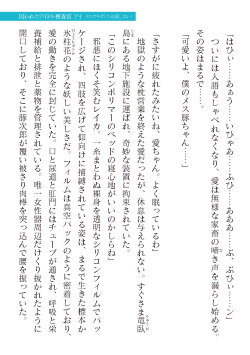 囚われたアイドル捜査官 アイ
「はひぃ……あぁう……いちゃあ……ふひ……あああ……ぶ、ぶひぃ……ン」
ついには人語もしゃべれなくなり、愛は無様な家畜の啼き声を漏らし始める。
その姿はまるで……。
「可愛いよ、僕のメス豚ちゃん……」
「さすがに疲れたみたいね、愛ちゃん。よく眠っているわ」
地獄のような枕営業を終えた愛だったが、休息は与えられない。すぐさま竜臥
島にある地下施設に運ばれ、奇妙な装置に拘束されていた。
「このシリコンポリマーのベッドの寝心地がいいのかしらね」
邪悪にほくそ笑むレイカ。一糸まとわぬ裸身を透明なシリコンフィルムでパッ
ケージされ、四肢を広げて仰向けに捕縛されている姿は、まるで生きた標本か
氷下花のような妖しい美しさだ。フィルムは真空パックのように密着しており、
愛の動きを完全に封じていた。口と尿道と肛門にはチューブが通され、呼吸と栄
養補給と排泄と薬物を管理されている。唯一女性器周辺だけくり抜かれたように
開口しており、そこに豚次郎が覆い被さり肉棒を突っ込んで腰を使っていた。